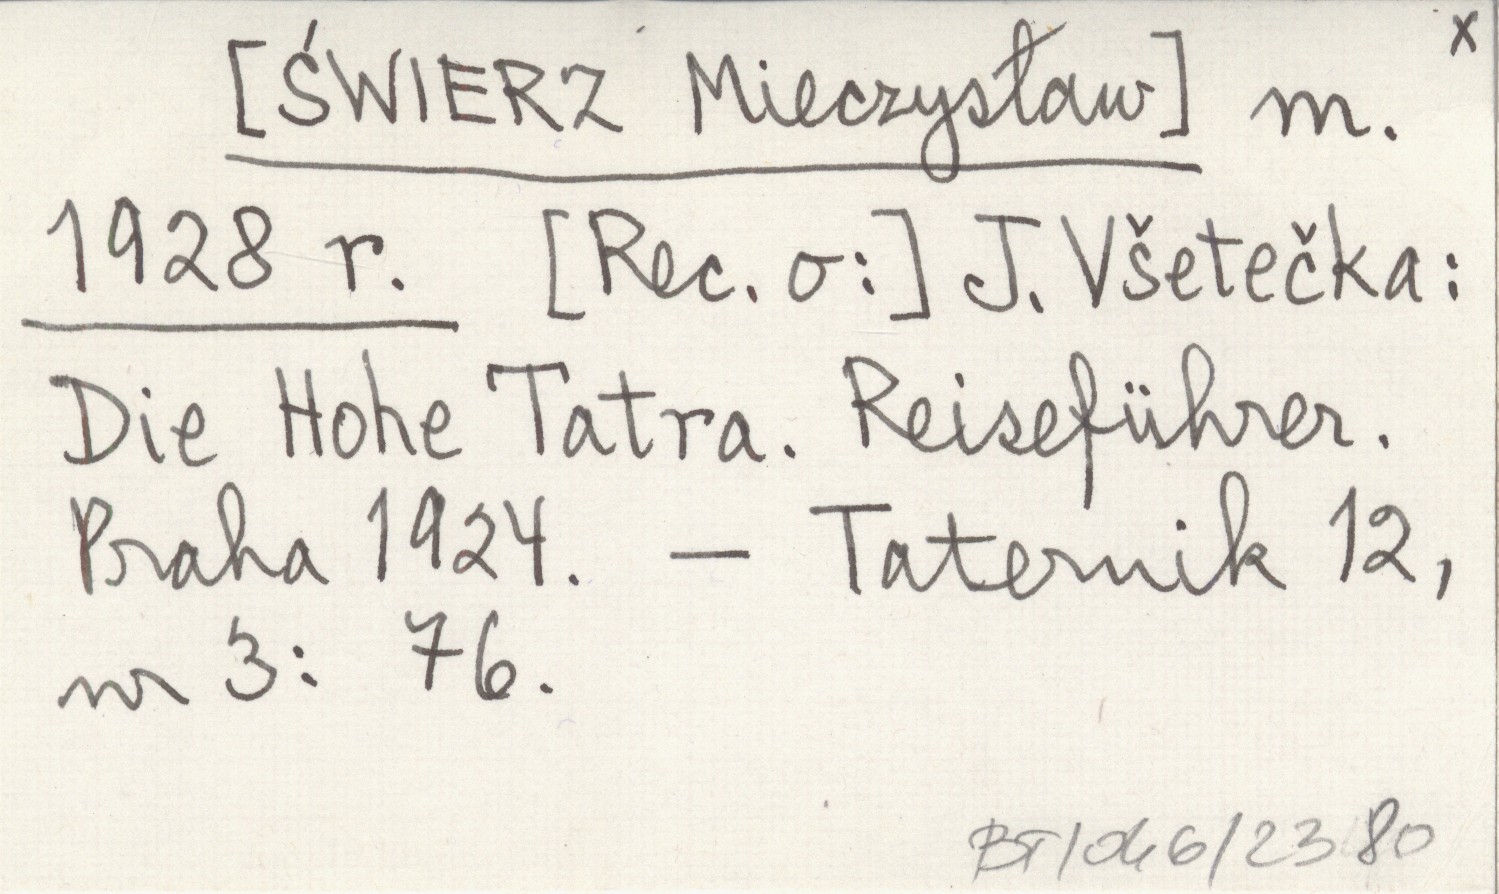 x
[ŚWIERZ Mieczysław] m.
1928 r. [Rec. o:] J. Všetečka:
Die Hohe Tatra. Reiseführer.
Praha 1924. — Taternik 12,
nr 3: 76.
80